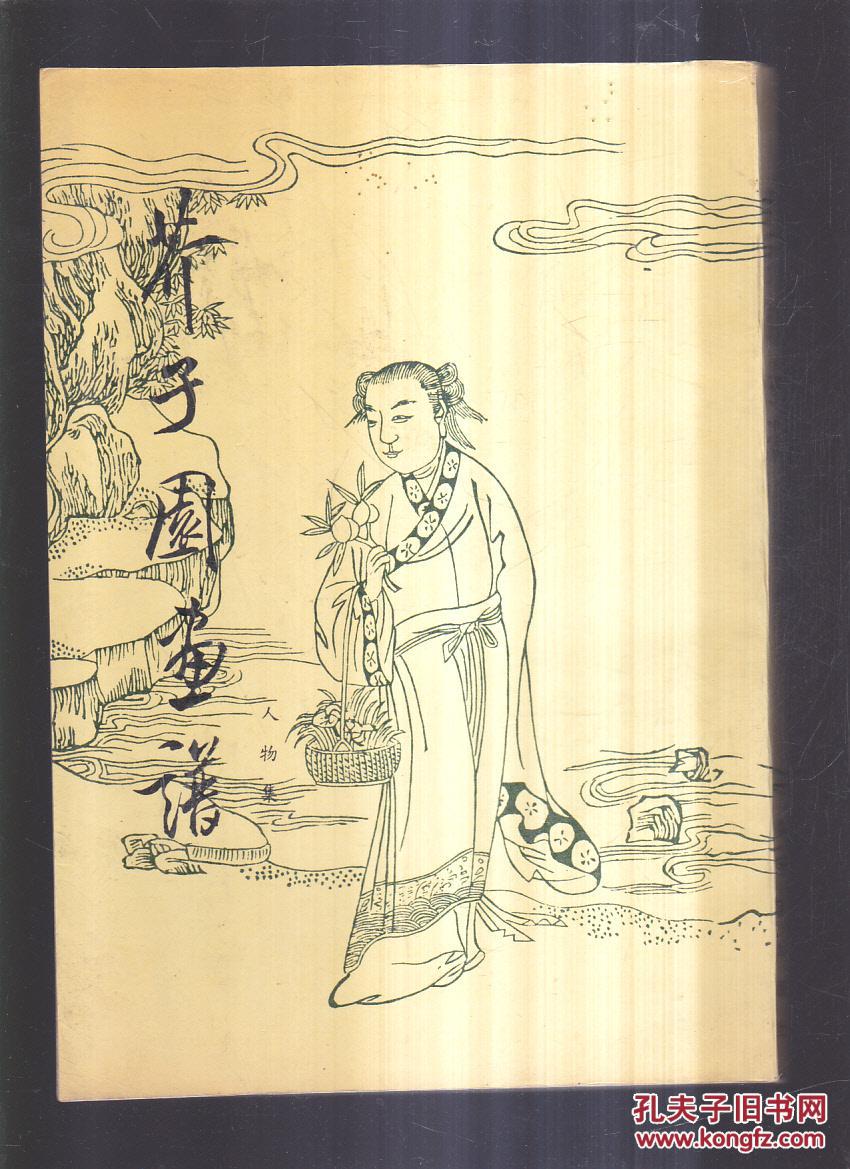 芥子園畫譜
人物集
孔夫子旧书网
www.kongfz.com